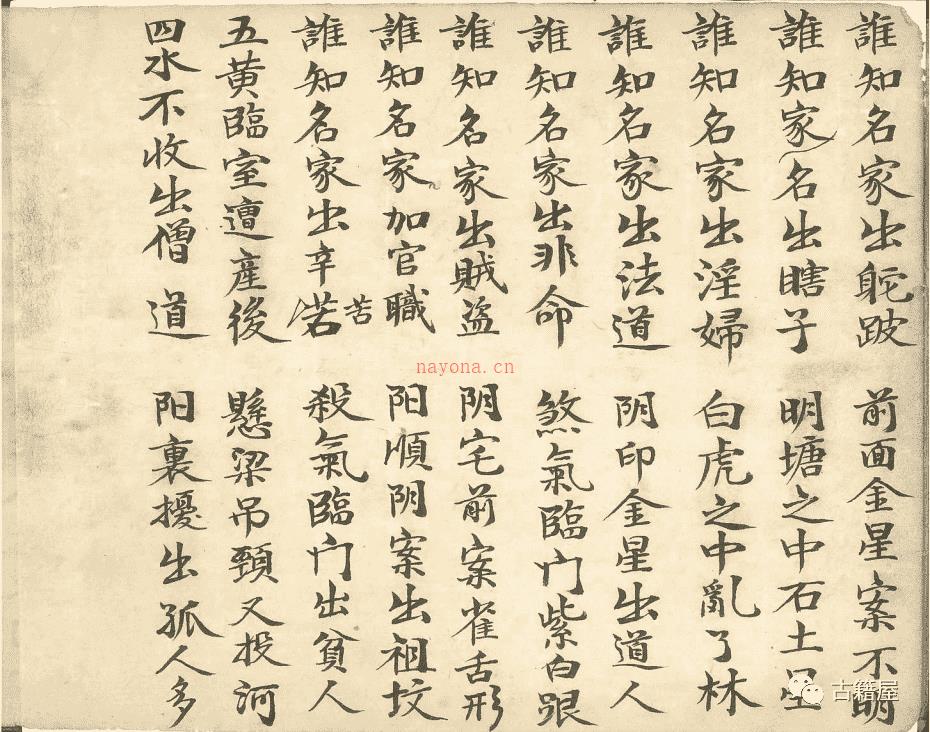 誰知名家出躼跛　前面金星案不明
誰知家名出瞎子　明塘之中石土星
誰知名家出淫婦　白虎之中亂了林
誰知名家出法道　阴印金星出道人
誰知名家出非命　煞氣臨门紫白跟
誰知名家出賊盜　阴宅前案雀舌形
誰知名家加官職　阳順阴案出祖坟
誰知名家出辛若苦　殺氣臨门出貧人
五黄臨室遭産後　懸梁吊頸又投河
四水不收出僧道　阳裏擾出孤人多
nayona.cn
古籍屋